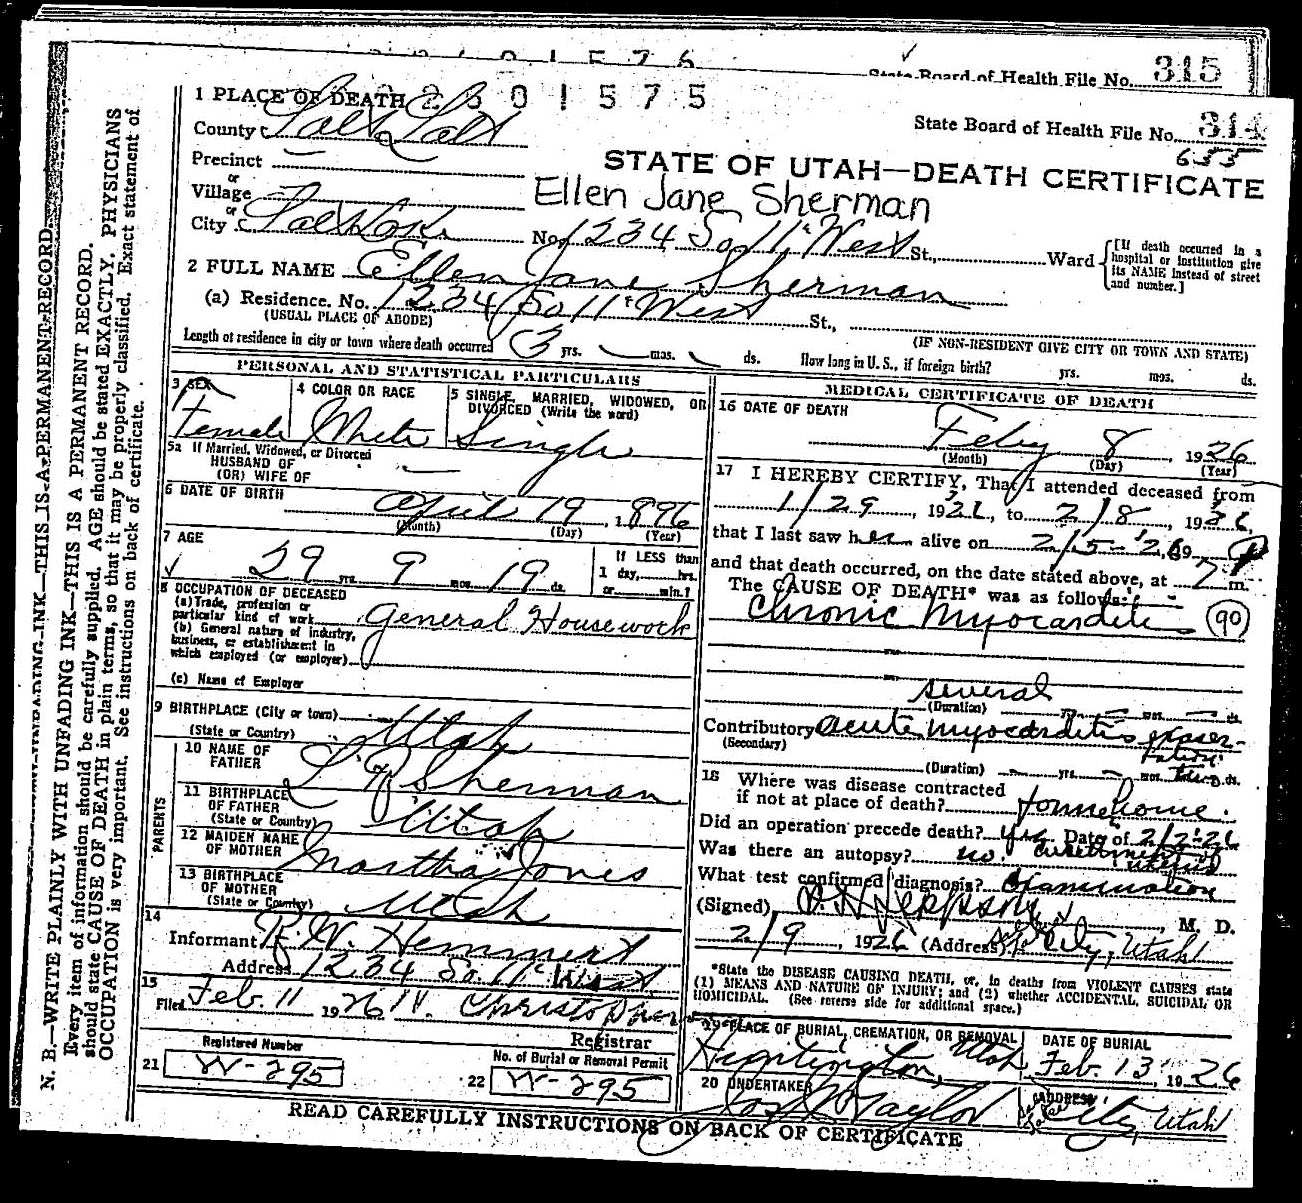 State Board of Health File No. 315
2601576
2601575
State Board of Health File No. 314
655
1 PLACE OF DEATH
County Salt Lake
STATE OF UTAH—DEATH CERTIFICATE
Precinct
or
Village
Ellen Jane Sherman
or
City Salt Lake No. 1234 So 11th West St., Ward
[If death occurred in a hospital or institution give its NAME instead of street and number.]
2 FULL NAME Ellen Jane Sherman
(a) Residence. No. 1234 So 11th West St.,
(USUAL PLACE OF ABODE)
(IF NON-RESIDENT GIVE CITY OR TOWN AND STATE)
Length of residence in city or town where death occurred 3 yrs. mos. ds. How long in U. S., if foreign birth? yrs. mos. ds.
PERSONAL AND STATISTICAL PARTICULARS
3 SEX
Female
4 COLOR OR RACE
White
5 SINGLE, MARRIED, WIDOWED, OR DIVORCED (Write the word)
Single
5a If Married, Widowed, or Divorced
HUSBAND OF
(OR) WIFE OF
6 DATE OF BIRTH
April 19, 1896
(Month) (Day) (Year)
7 AGE
29 yrs. 9 mos. 19 ds.
If LESS than
1 day, hrs.
or min.?
8 OCCUPATION OF DECEASED
(a) Trade, profession or particular kind of work General Housework
(b) General nature of industry, business, or establishment in which employed (or employer)
(c) Name of Employer
9 BIRTHPLACE (City or town)
(State or Country) Utah
PARENTS
10 NAME OF FATHER L R Sherman
11 BIRTHPLACE OF FATHER
(State or Country) Utah
12 MAIDEN NAME OF MOTHER Martha Jones
13 BIRTHPLACE OF MOTHER
(State or Country) Utah
14
Informant R. W. Hemmert
Address 1234 So. 11th West
15
Filed Feb. 11 1926 Christopherson
Registrar
Registered Number
21 W-295
No. of Burial or Removal Permit
22 W-295
MEDICAL CERTIFICATE OF DEATH
16 DATE OF DEATH
Feby 8, 1926
(Month) (Day) (Year)
17 I HEREBY CERTIFY, That I attended deceased from
1/29, 1926, to 2/8, 1926,
that I last saw her alive on 2/5-'26, 19
and that death occurred, on the date stated above, at 7 P m.
The CAUSE OF DEATH* was as follows:
Chronic Myocarditis 90
several
(Duration) yrs. mos. ds.
Contributory acute myocarditis
(Secondary)
(Duration) yrs. mos. ds.
18 Where was disease contracted
if not at place of death? former home.
Did an operation precede death? yes Date of 2/2-26
Was there an autopsy? no.
What test confirmed diagnosis? Examination
(Signed) Jeppson, M. D.
2/9, 1926 (Address) City, Utah
*State the DISEASE CAUSING DEATH, or, in deaths from VIOLENT CAUSES state
(1) MEANS AND NATURE OF INJURY; and (2) whether ACCIDENTAL, SUICIDAL OR
HOMICIDAL. (See reverse side for additional space.)
PLACE OF BURIAL, CREMATION, OR REMOVAL
Huntington, Utah
DATE OF BURIAL
Feb. 13, 1926
20 UNDERTAKER
Taylor
ADDRESS
City, Utah
READ CAREFULLY INSTRUCTIONS ON BACK OF CERTIFICATE
N. B.—WRITE PLAINLY WITH UNFADING INK—THIS IS A PERMANENT RECORD.
Every item of information should be carefully supplied. AGE should be stated EXACTLY. PHYSICIANS
should state CAUSE OF DEATH in plain terms, so that it may be properly classified. Exact statement of
OCCUPATION is very important. See instructions on back of certificate.